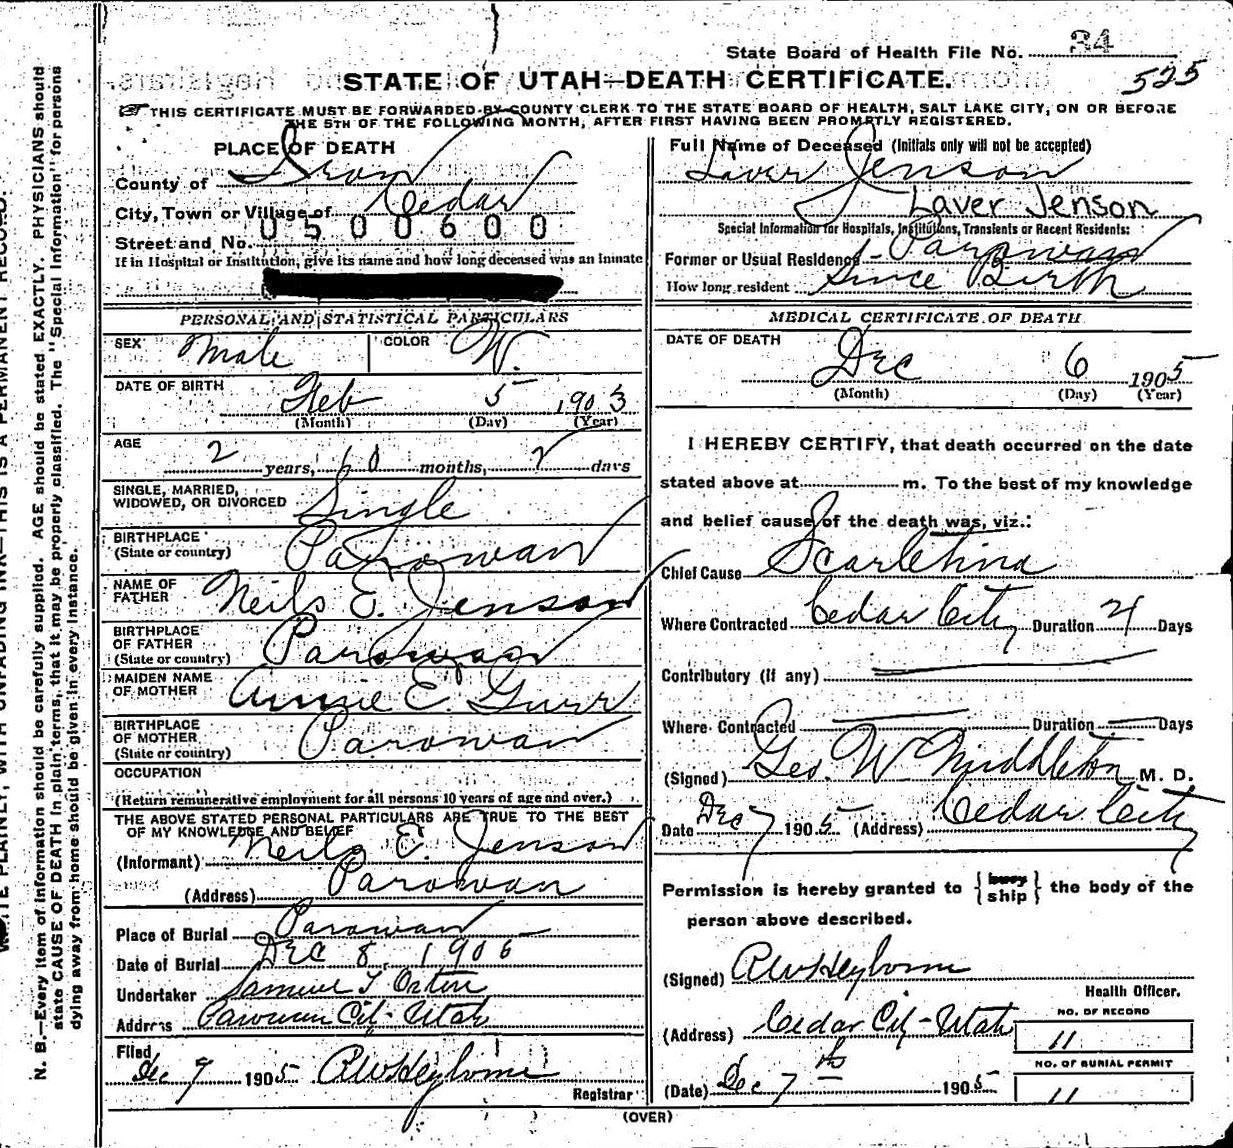 State Board of Health File No. 34
STATE OF UTAH—DEATH CERTIFICATE.
525
THIS CERTIFICATE MUST BE FORWARDED BY COUNTY CLERK TO THE STATE BOARD OF HEALTH, SALT LAKE CITY, ON OR BEFORE
THE 5TH OF THE FOLLOWING MONTH, AFTER FIRST HAVING BEEN PROMPTLY REGISTERED.
PLACE OF DEATH
County of Iron
City, Town or Village of Cedar
0500600
Street and No.
If in Hospital or Institution, give its name and how long deceased was an inmate
PERSONAL AND STATISTICAL PARTICULARS
SEX Male COLOR W.
DATE OF BIRTH Feb 5 1903
(Month) (Day) (Year)
AGE 2 years, 10 months, 2 days
SINGLE, MARRIED, WIDOWED, OR DIVORCED Single
BIRTHPLACE (State or country) Parowan
NAME OF FATHER Neils E. Jenson
BIRTHPLACE OF FATHER (State or country) Parowan
MAIDEN NAME OF MOTHER Annie E. Gurr
BIRTHPLACE OF MOTHER (State or country) Parowan
OCCUPATION
(Return remunerative employment for all persons 10 years of age and over.)
THE ABOVE STATED PERSONAL PARTICULARS ARE TRUE TO THE BEST
OF MY KNOWLEDGE AND BELIEF
(Informant) Neils E. Jenson
(Address) Parowan
Place of Burial Parowan
Date of Burial Dec 8, 1905
Undertaker Samuel T Orton
Address Parowan City - Utah
Filed
Dec 9 1905
Registrar
Full Name of Deceased (Initials only will not be accepted)
Laver Jenson
Laver Jenson
Special Information for Hospitals, Institutions, Transients or Recent Residents:
Former or Usual Residence Parowan
How long resident Since Birth
MEDICAL CERTIFICATE OF DEATH
DATE OF DEATH
Dec 6 1905
(Month) (Day) (Year)
I HEREBY CERTIFY, that death occurred on the date
stated above at m. To the best of my knowledge
and belief cause of the death was, viz.:
Chief Cause Scarletina
Where Contracted Cedar City Duration Days
Contributory (if any)
Where Contracted Duration Days
(Signed) Geo. W Middleton M. D.
Date Dec 7 1905 (Address) Cedar City
Permission is hereby granted to { bury ship } the body of the
person above described.
(Signed)
Health Officer.
(Address) Cedar City - Utah
NO. OF RECORD
11
NO. OF BURIAL PERMIT
11
(Date) Dec 7 th 1905
(OVER)
N. B.—Every item of information should be carefully supplied. AGE should be stated EXACTLY. PHYSICIANS should
state CAUSE OF DEATH in plain terms, that it may be properly classified. The "Special Information" for persons
dying away from home should be given in every instance.
WRITE PLAINLY, WITH UNFADING INK—THIS IS A PERMANENT RECORD.